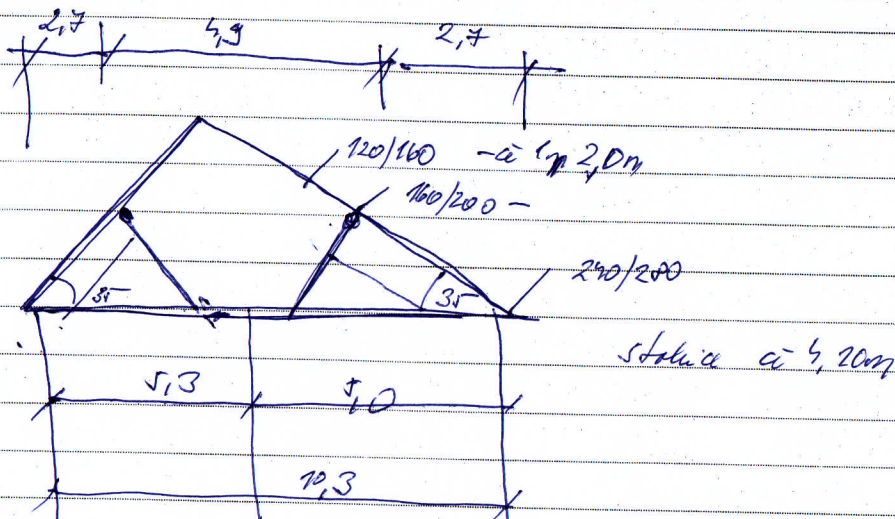 2,7 4,9 2,7
120/160 - á 1m 2,0m
160/200 -
240/280
35 35
stolice á 4,20m
5,3 5,0
10,3